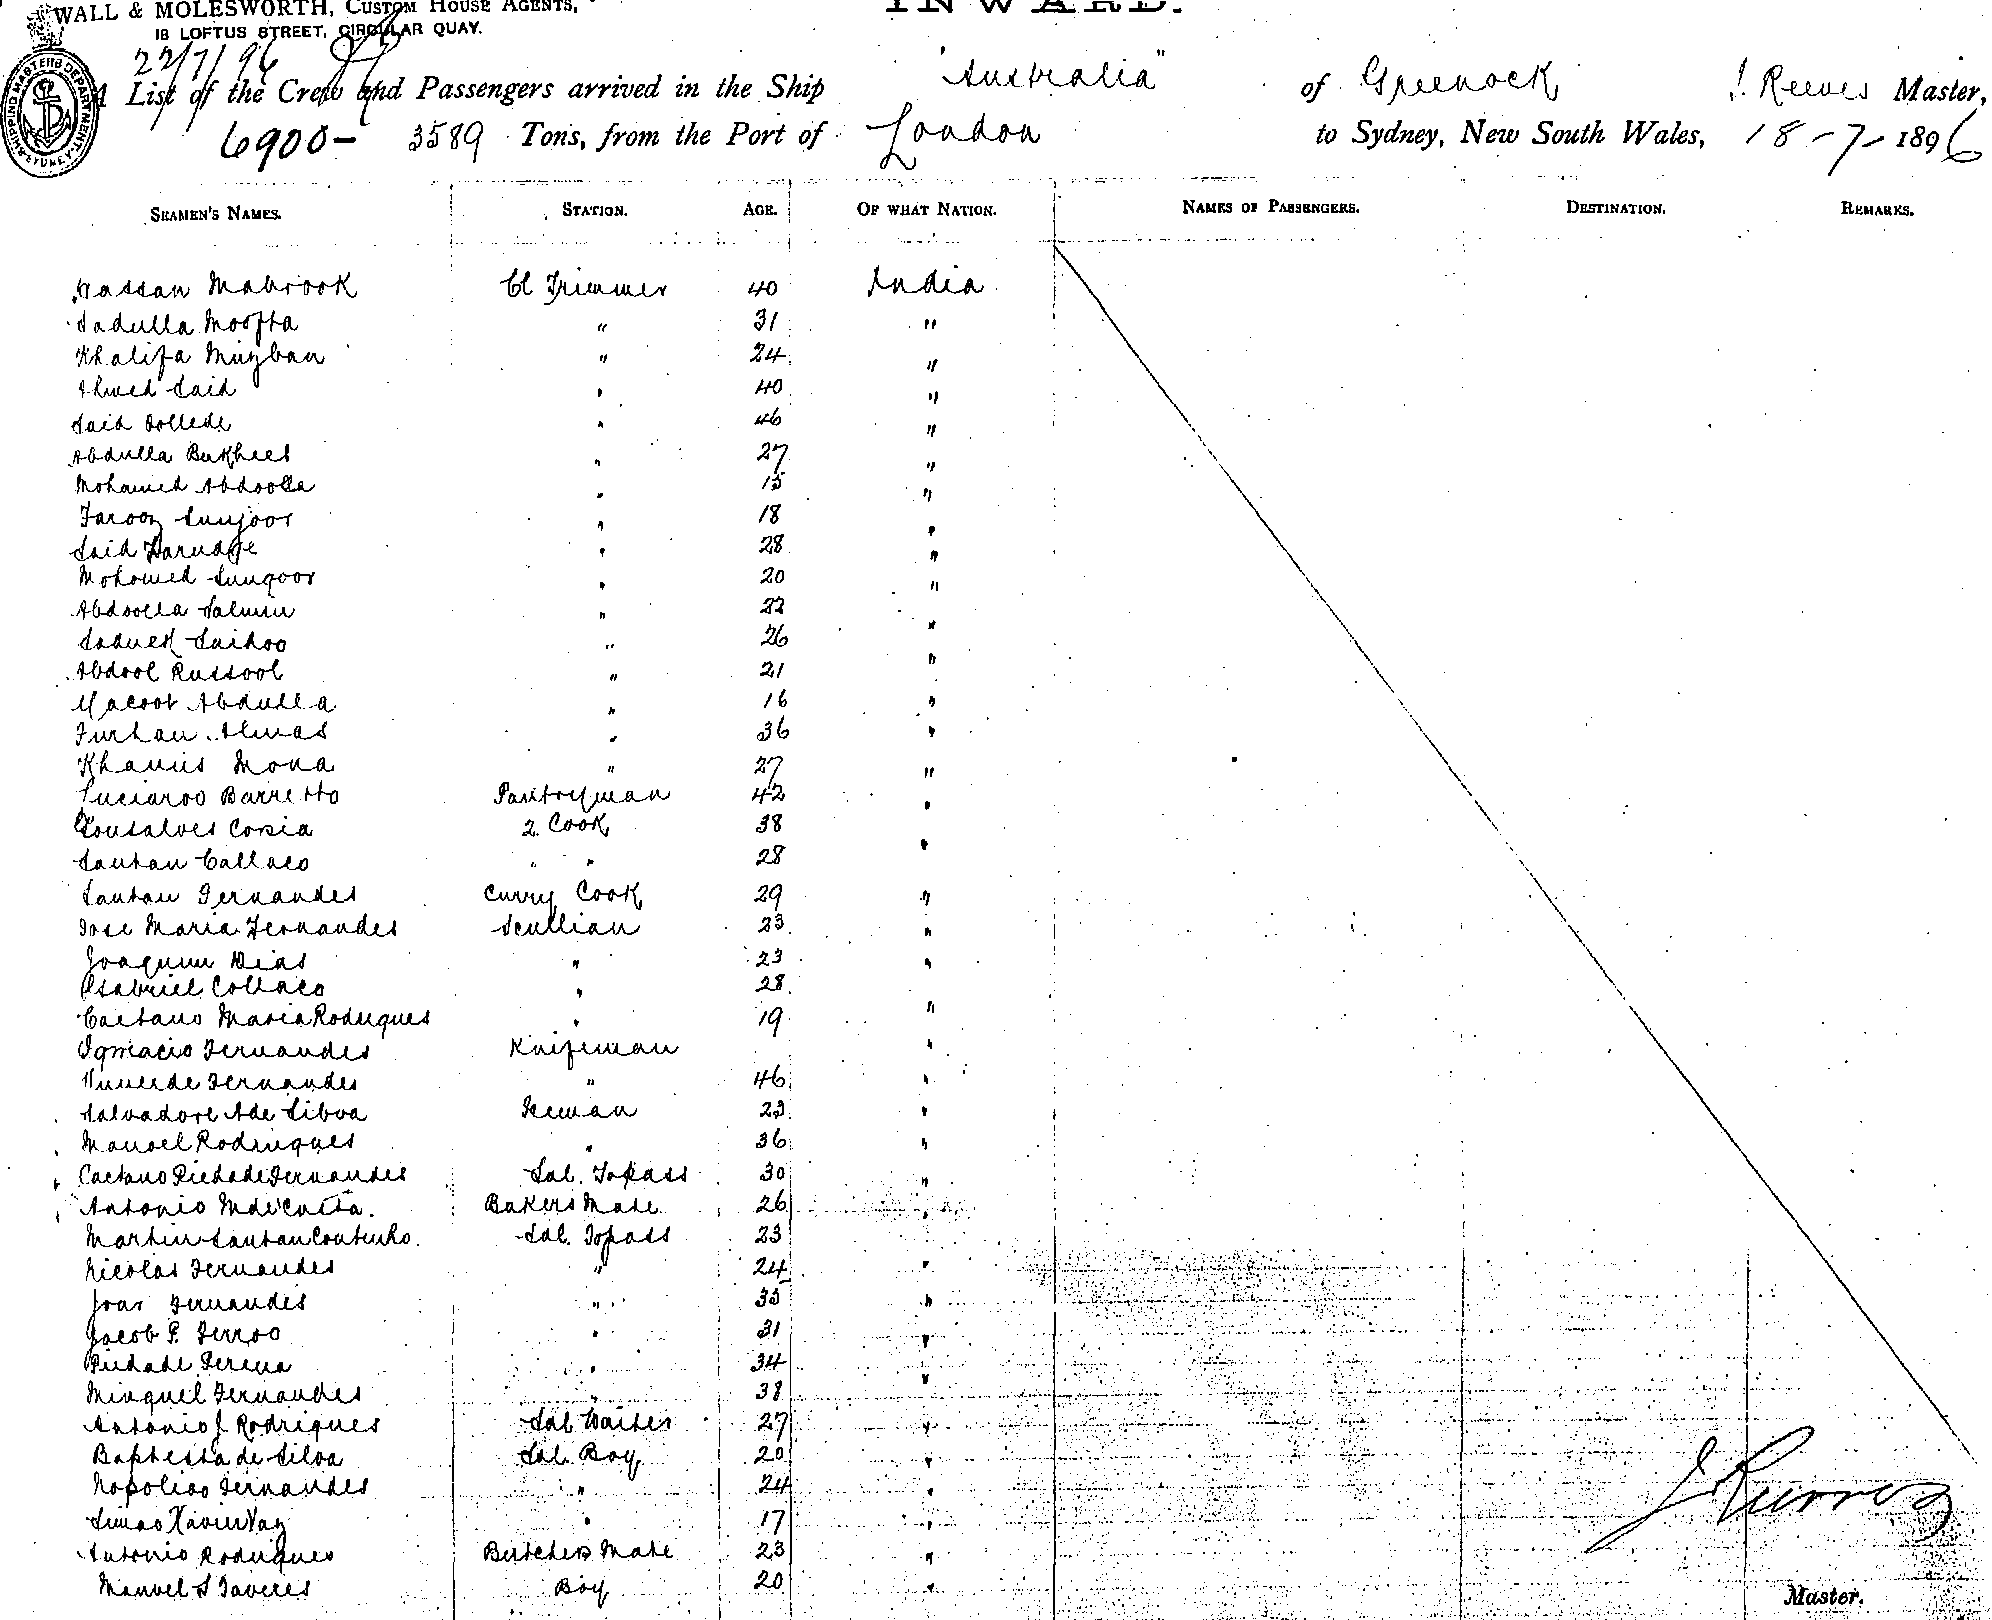 WALL & MOLESWORTH, CUSTOM HOUSE AGENTS,
18 LOFTUS STREET, CIRCULAR QUAY.
INWARD.
22/7/96
SHIPPING MASTER'S DEPARTMENT SYDNEY
A List of the Crew and Passengers arrived in the Ship "Australia" of Greenock J. Reeves Master,
6900- 3589 Tons, from the Port of London to Sydney, New South Wales, 18-7-1896
SEAMEN'S NAMES. STATION. AGE. OF WHAT NATION. NAMES OF PASSENGERS. DESTINATION. REMARKS.
Hassan Mabrook Cl Trimmer 40 India
Sadulla Moofta " 31 "
Khalifa Muzban " 24 "
Ahmed Said " 40 "
Said 46 "
Abdulla Bukheet " 27 "
Mohamed Abdoolla " 15 "
Farooz Sungoor " 18 "
Said " 28 "
Mohomed Sungoor " 20 "
Abdoolla Salmin " 22 "
Saidoo " 26 "
Abdool Russool " 21 "
Yacoot Abdulla " 16 "
Furhan Almas " 36 "
Khamis Mona " 27 "
Luciaroo Barretto Pantryman 42 "
Gonsalves Coria 2. Cook 38 "
Santan Callaco " " 28
Santan Fernandes Curry Cook 29 "
Jose Maria Fernandes Scullian 23 "
Joaquim Dias " 23 "
Gabriel Collaco " 28
Caetano Maria Rodrigues " 19 "
Igniacio Fernandes Knifeman "
Fernandes " 46 "
Salvadore A de Silva Iceman 23 "
Manoel Rodrigues " 36 "
Caetano Piedade Fernandes Sal. Topass 30 "
Antonio M de Costa. Bakers Mate 26 "
Martin Santan Coutinho. Sal. Topass 23 "
Nicolas Fernandes " 24 "
Joao Fernandes " 35 "
Jacob P. Ferroo " 31 "
Piedade Fereira " 34 "
Minguel Fernandes " 38 "
Antonio J. Rodrigues Sal Waiter 27 "
Baptista de Silva Sal. Boy 20 "
Napolioo Fernandes " 24 "
Simao Xavier Vaz " 17 "
Antonio Rodrigues Butchers Mate 23 "
Manuel S Taveres Boy 20 "
J Reeves
Master.